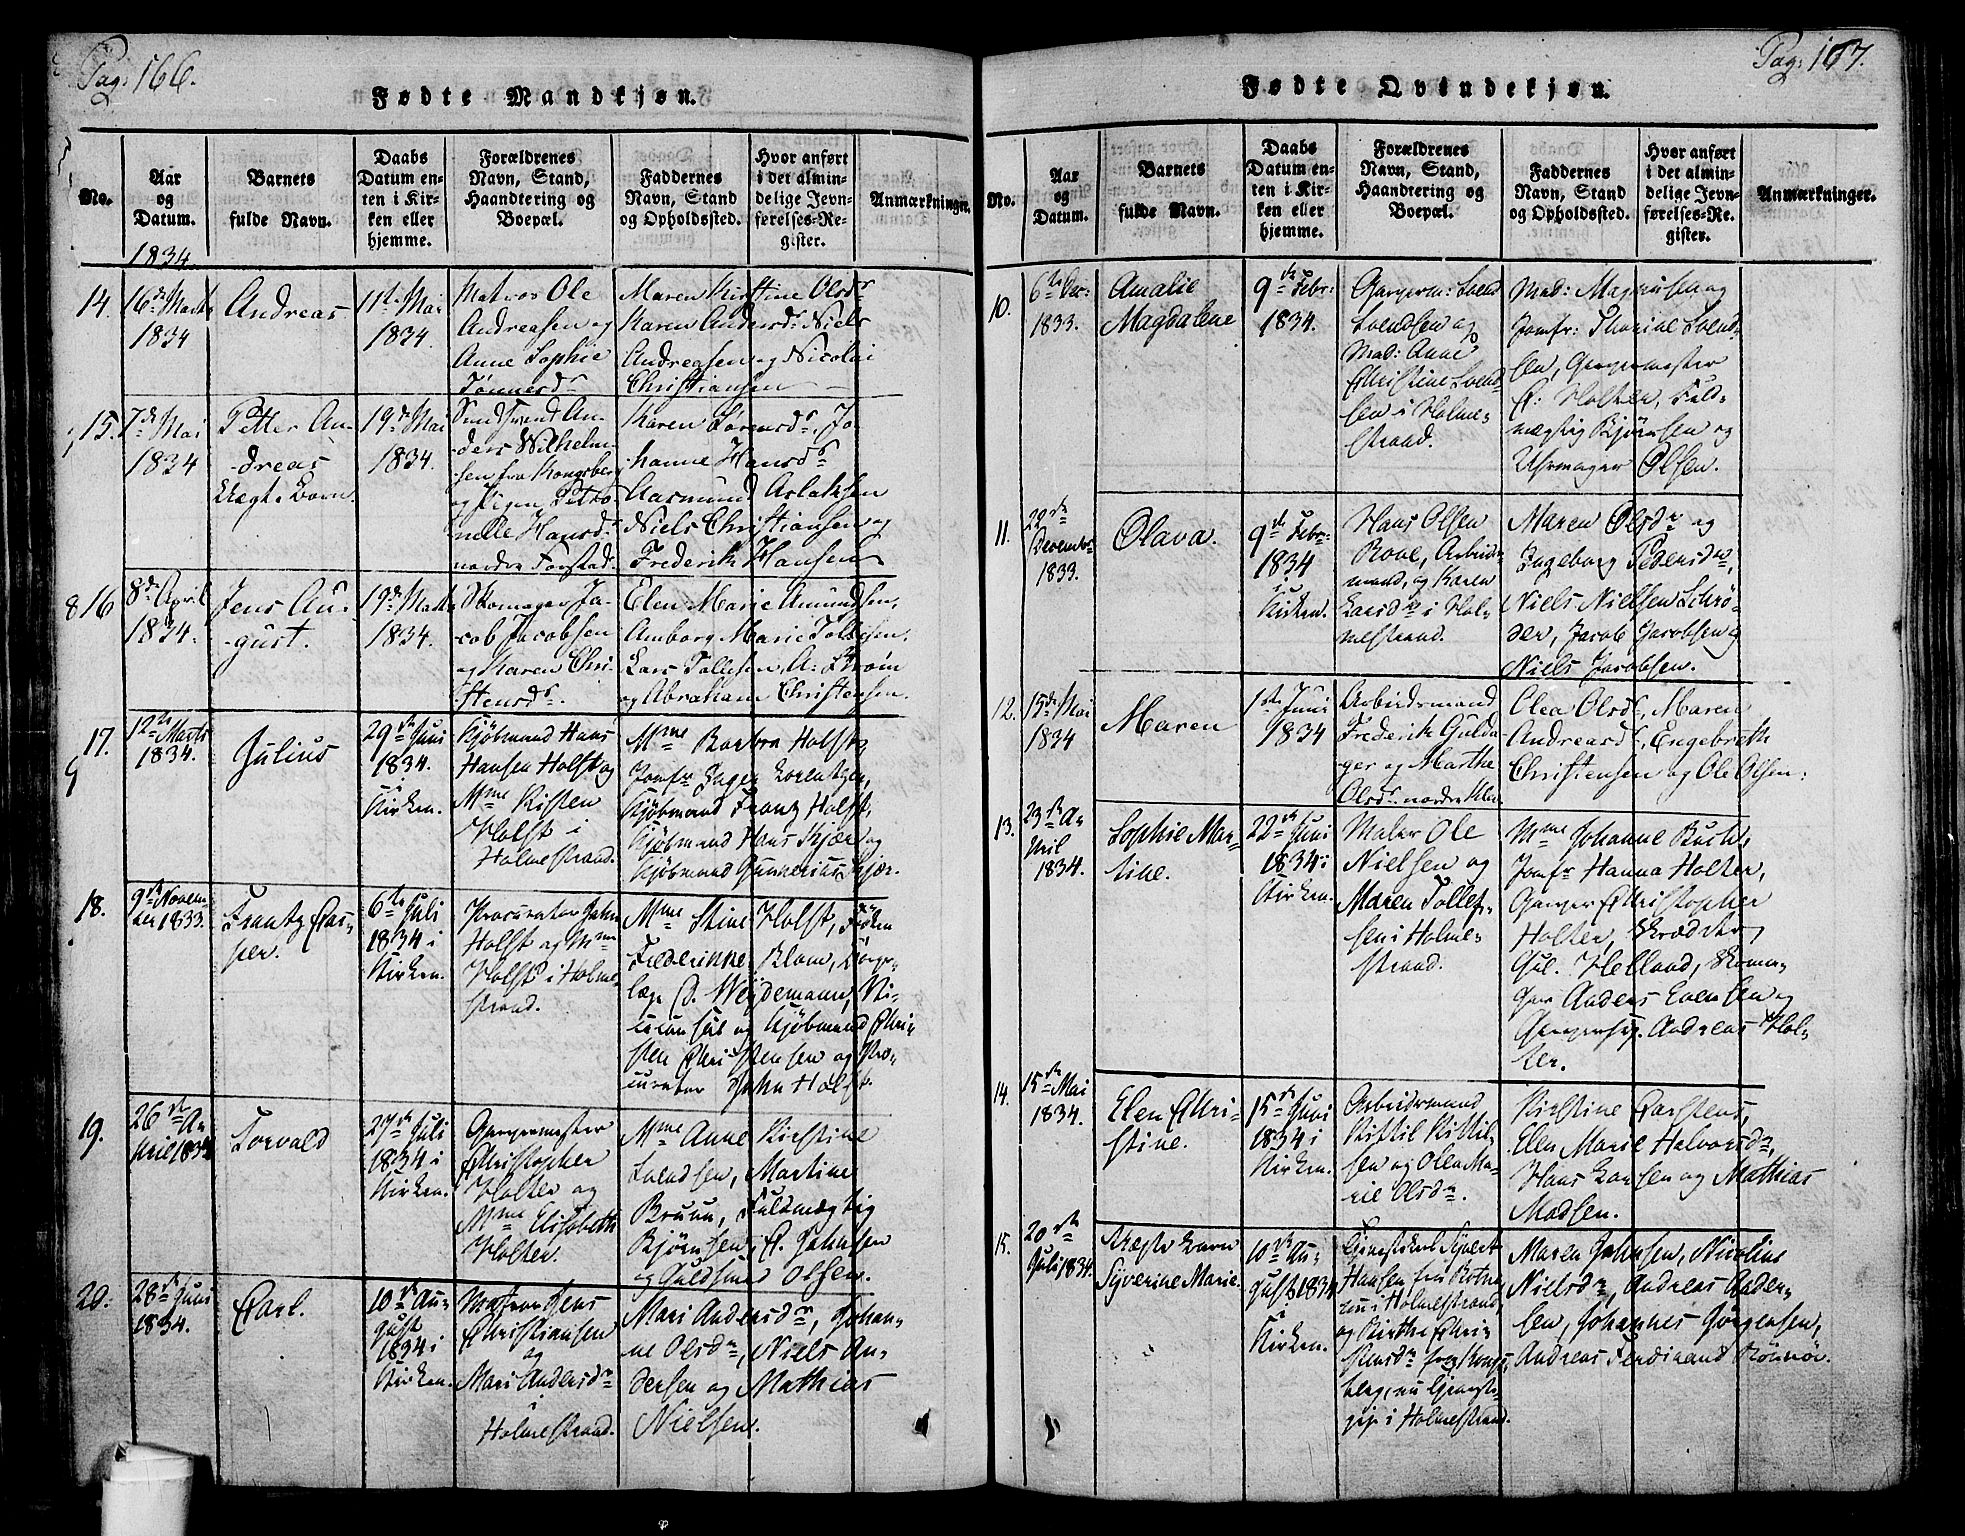 Pag: 166.
Fødte Mandkjøn.
No.
Aar og Datum.
Barnets fulde Navn.
Daabs Datum enten i Kirken eller hjemme.
Forældrenes Navn, Stand, Haandtering og Boepæl.
Faddernes Navn, Stand og Opholdssted.
Hvor anført i det almindelige Jevnførelses-Register.
Anmærkninger.
1834.
14.
16de Marts
1834
Andreas
11te Mai
1834.
Matros Ole
Andreasen og
Anne Sophie
Tønnesdr
Maren Kirstine Olsdr
Karen Andersdr Niels
Andreasen og Nicolai
Christiansen
15.
7de Mai
1834
Petter An-
dreas
Uægte Barn.
19de Mai
1834.
An-
ders Wilhelm-
sen fra Kongsberg
og Pigen Petro
nelle Hansdr
nordre Forstad.
Karen Sørensdr, Jo
hanne Hansdr
Aasmund Aslaksen
Niels Christiansen og
Frederik Hansen
16
8de April
1834.
Jens Au-
gust.
19de Marts
1834.
Skomager Ja-
cob Jacobsen
og Maren Chri-
stensdr.
Elen Marie Amundsen,
Amborg Marie Tollefsen,
Lars Tollefsen, A: Strøm
og Abraham Christensen.
17.
12te Marts
1834.
Julius
29de Juni
1834.
i
Kirken.
Kjøbmand Hans
Hansen Holst og
Mme Kisten
Holst i
Holmestrand.
Mme Barbra Holst,
Jomfr Inger Lorentzen,
Kjøbmand Frantz Holst,
Kjøbmand Hans Kjær og
Kjøbmand Gunnerius Kjær.
18.
9de Novem-
ber 1833.
Frantz Cas-
per.
6te Juli
1834 i
Kirken.
Procurator John
Holst og Mme
Holst i Holme-
strand.
Mme Stine Holst, Frøken
Frederikke Blom,
læge C. Weydemann,
og Kjøbmand Chri-
sten Christensen og Pro-
curator John Holst.
19.
26de A-
pril 1834
Torvald
27de Juli
1834 i
Kirken.
Garvermester
Christopher
Holter og
Mme Elisabeth
Holter.
Mme Anne Kirstine
Svendsen, Martine
Bruun, Fuldmægtig
Bjørnsen, C. Johnsen
og Guldsmed Olsen.
20.
28de Juni
1834.
Carl.
10de Au-
gust
1834 i
Kirken.
Matros Jens
Christiansen
og
Mari Andersdr
i
Holmestrand.
Mari Andersdr, Johan-
ne Olsdr, Niels An-
dersen og Mathias
Nielsen.
Pag: 167.
Fødte Qvindekjøn.
No.
Aar og Datum.
Barnets fulde Navn.
Daabs Datum enten i Kirken eller hjemme.
Forældrenes Navn, Stand, Haandtering og Boepæl.
Faddernes Navn, Stand og Opholdssted.
Hvor anført i det almindelige Jevnførelses-Register.
Anmærkninger.
10.
6te Dec:
1833.
Amalie
Magdalene
9de Febr:
1834.
Garverm: Svend
Svendsen og
Mad: Anne
Christine Svend-
sen i Holme-
strand.
Mad: Magnusen og
Jomfr: Thorine Svend-
sen, Garvermester
C: Holter, Fuld-
mægtig Bjørnsen og
Uhrmager Olsen.
11.
29de
December
1833.
Olava.
9de Febr:
1834
i
Kirken.
Hans Olsen
Rove, Arbeids-
mand, og Karen
Larsdr i Hol-
mestrand.
Maren Olsdr og
Ingeborg Pedersdr,
Niels Nielsen Schrø-
der, Jacob Jacobsen og
Niels Jacobsen.
12.
15de Mai
1834
Maren
1ste Juni
1834
Arbeidsmand
Frederik Gulda-
ger og Marthe
Olsdr nordre
Olea Olsdr, Maren
Andreasdr, Engebreth
Christensen og Ole Olsen.
13.
23de A-
pril
1834.
Sophie Mar-
tine.
22de Juni
1834 i
Kirken.
Maler Ole
Nielsen og
Maren Tollef-
sen i Holme-
strand.
Mme Johanne Buch,
Jomfr Hanna Holter,
Garver Christopher
Holter, Skrædder
Gul. Helland, Skoma-
ger Anders Evensen og
Garversv. Andreas Hol-
ter.
14.
15de Mai
1834.
Elen Chri-
stine.
15de Juni
1834 i
Kirken.
Arbeidsmand
Kittil Kittil-
sen og Olea Ma-
rie Olsdr.
Kirstine Carstens,
Elen Marie Halvorsdr,
Hans Larsen og Mathias
Madsen.
15.
20de
Juli 1834.
Uægte Barn
Syverine Marie.
10de Au-
gust 1834
i
Kirken.
Tjenestekarl Syvert
Hansen fra
i Holmestrand
og Birthe Chri-
stensdr fra Kongs-
berg, nu Tjeneste-
pige i Holmestrand.
Maren Johnsen, Nicoline
Nielsdr, Andreas Ander-
sen, Johannes Jørgensen,
Andreas Ferdinand Rønnør.